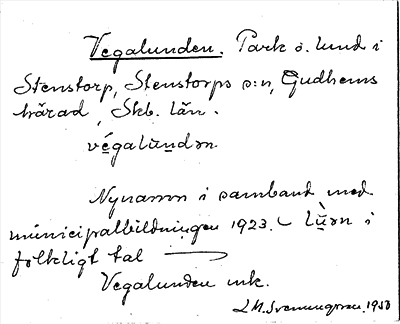 Vegalunden. Park o. lund i
Stenstorp, Stenstorps s:n, Gudhems
härad, Skb. län.
végalundən
Nynamn i samband med
municipalbildningen 1923. – Lùn̥ən i
folkligt tal
Vegalunden mk.
1950